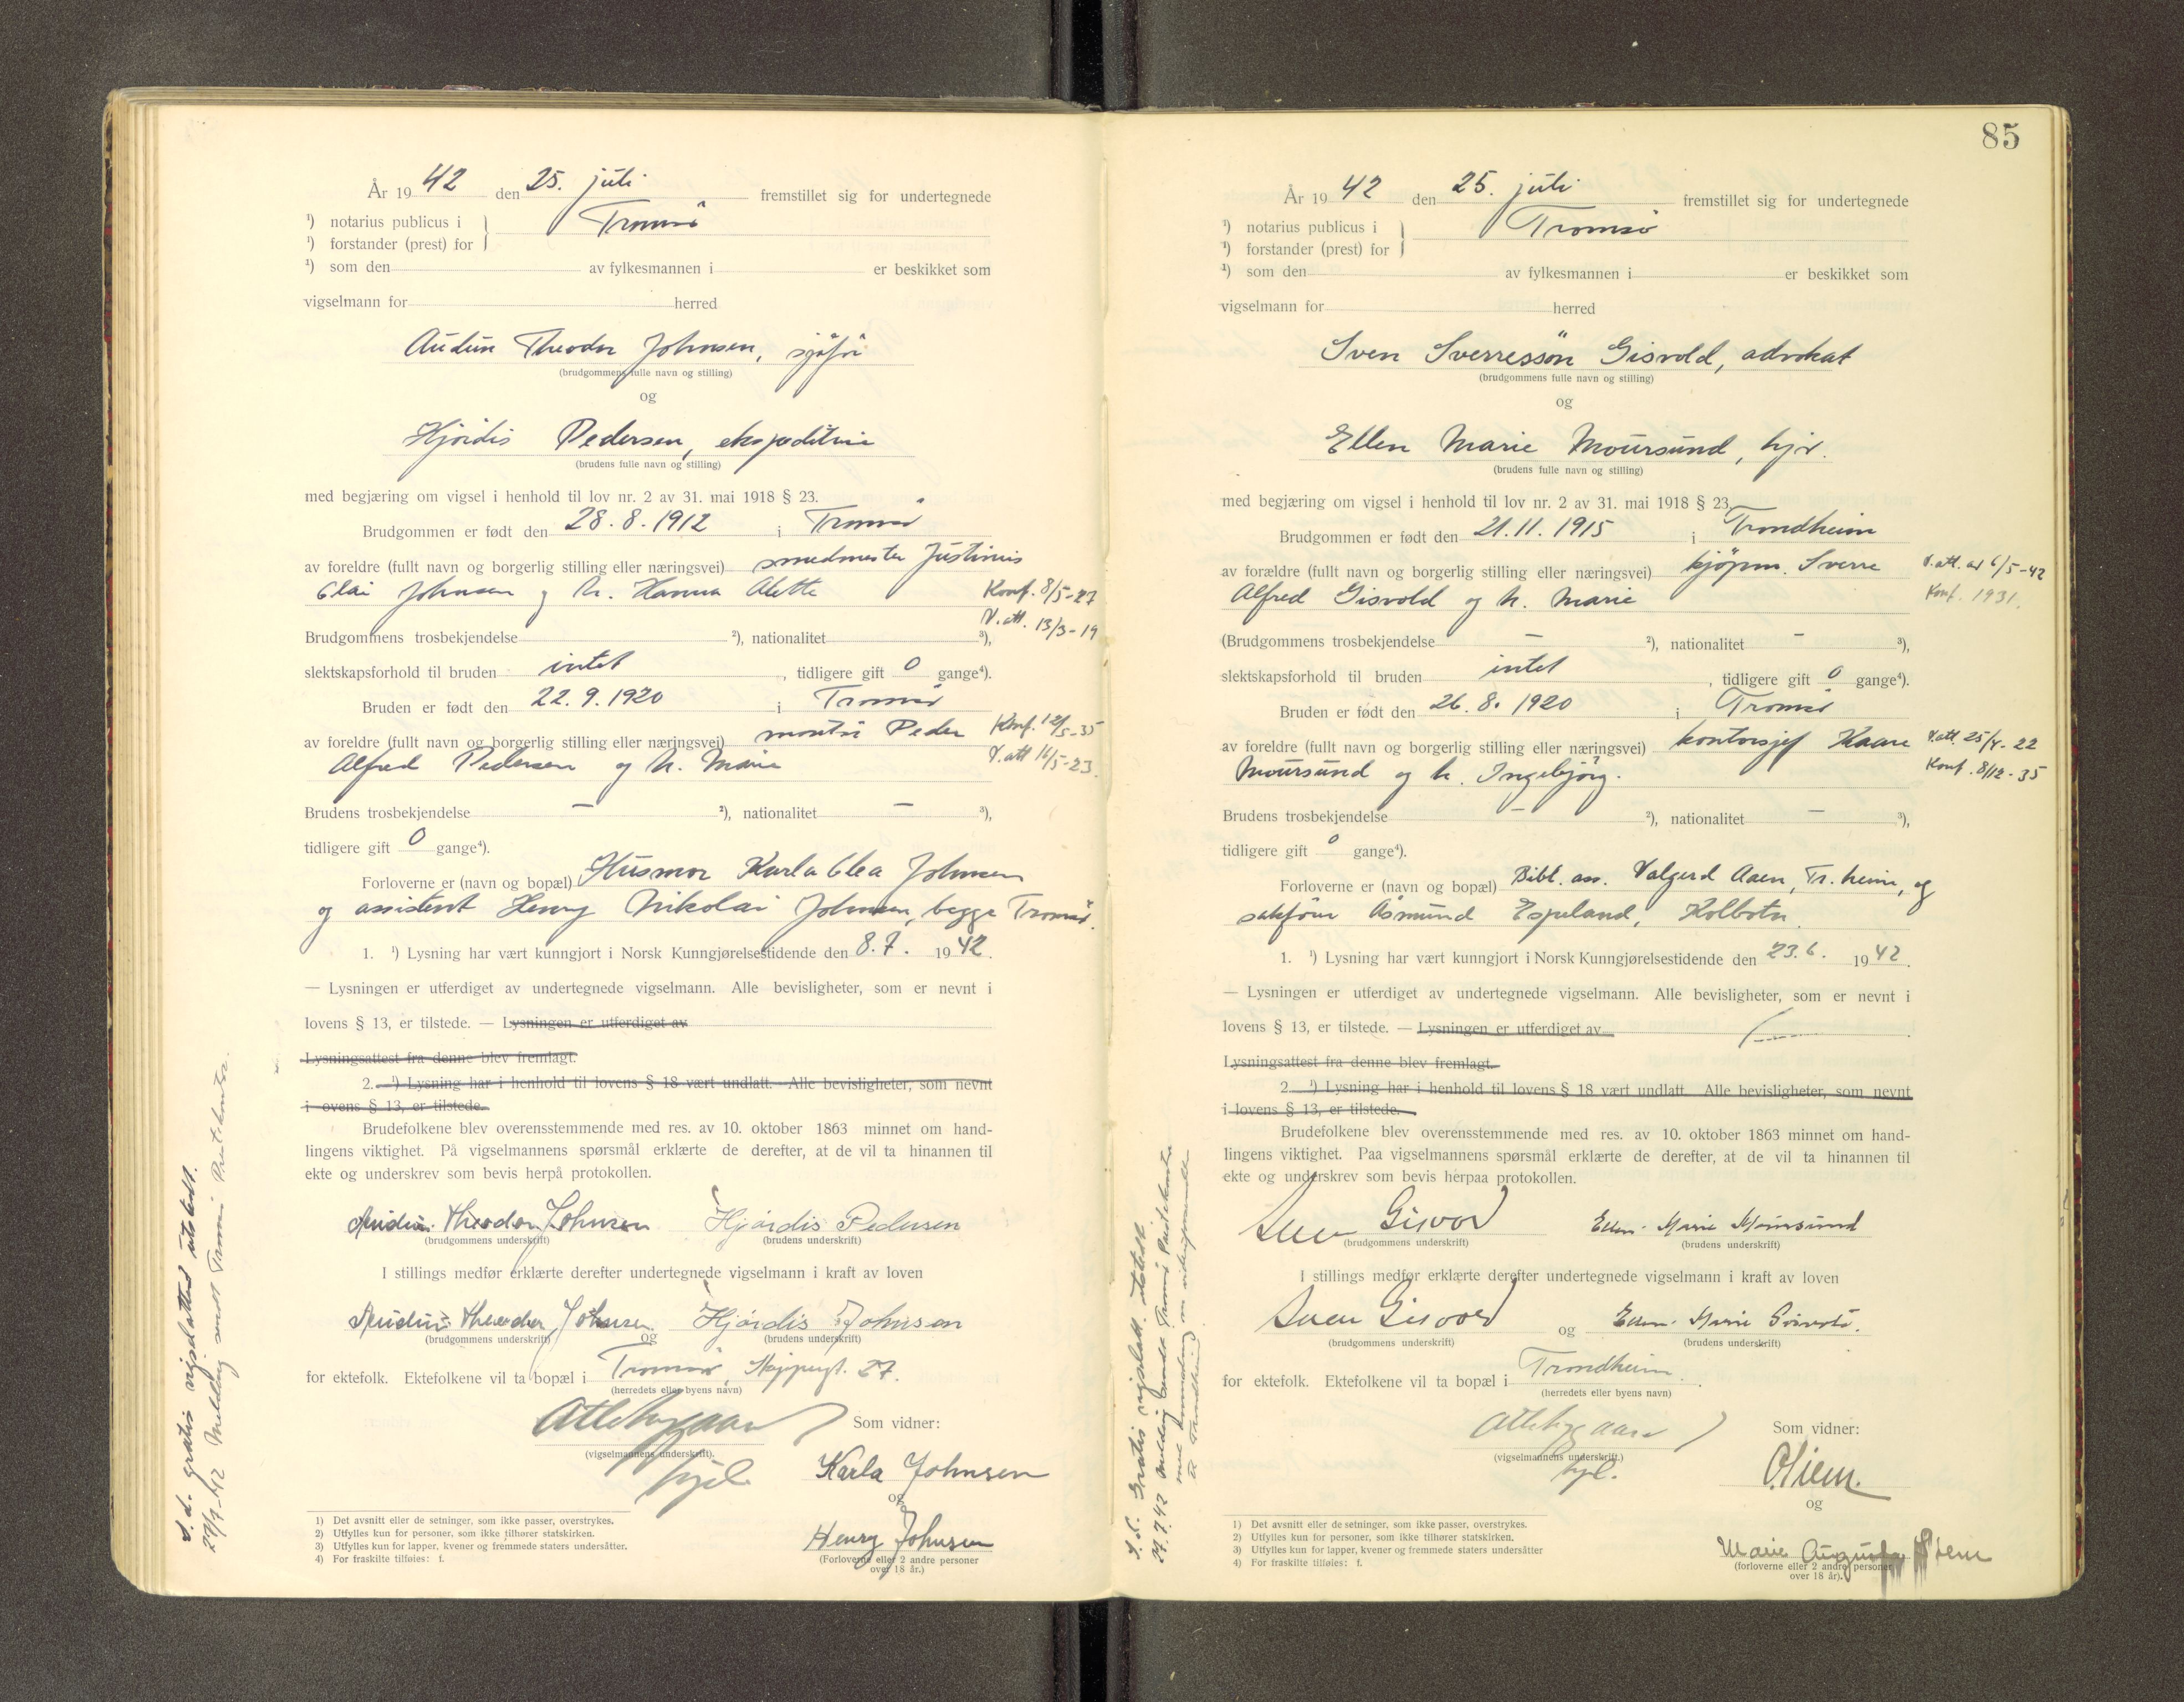 År 19 42 den 25. juli fremstillet sig for undertegnede
¹) notarius publicus i
¹) forstander (prest) for
Tromsø
¹) som den av fylkesmannen i er beskikket som
vigselmann for herred
Audun Theodor Johnsen, sjåfør
(brudgommens fulle navn og stilling)
og
Hjørdis Pedersen, ekspeditrise
(brudens fulle navn og stilling)
med begjæring om vigsel i henhold til lov nr. 2 av 31. mai 1918 § 23.
Brudgommen er født den 28.8.1912 i Tromsø
av foreldre (fullt navn og borgerlig stilling eller næringsvei) smedmester Justinus
Olai Johnsen og h. Hanna Alette
Konf. 8/5-27
V. att. 13/3-19
Brudgommens trosbekjendelse ²), nationalitet ³),
slektskapsforhold til bruden intet, tidligere gift 0 gange⁴).
Bruden er født den 22.9.1920 i Tromsø
av foreldre (fullt navn og borgerlig stilling eller næringsvei) montør Peder
Konf. 12/5-35
Alfred Pedersen og h. Marie
V. att 16/5-23.
Brudens trosbekjendelse — ²), nationalitet — ³),
tidligere gift 0 gange⁴).
Forloverne er (navn og bopæl) Husmor Karla Olea Johnsen
og assistent Henry Nikolai Johnsen, begge Tromsø.
1. ¹) Lysning har vært kunngjort i Norsk Kunngjørelsestidende den 8.7. 19 42.
— Lysningen er utferdiget av undertegnede vigselmann. Alle bevisligheter, som er nevnt i
lovens § 13, er tilstede. — Lysningen er utferdiget av
Lysningsattest fra denne blev fremlagt.
2. ¹) Lysning har i henhold til lovens § 18 vært undlatt. Alle bevisligheter, som nevnt
i ovens § 13, er tilstede.
Brudefolkene blev overensstemmende med res. av 10. oktober 1863 minnet om hand-
lingens viktighet. På vigselmannens spørsmål erklærte de derefter, at de vil ta hinannen til
ekte og underskrev som bevis herpå protokollen.
Audun Theodor Johnsen Hjördis Pedersen
(brudgommens underskrift) (brudens underskrift)
I stillings medfør erklærte derefter undertegnede vigselmann i kraft av loven
Audun Theodor Johnsen og Hjördis Johnsen
(brudgommens underskrift) (brudens underskrift)
for ektefolk. Ektefolkene vil ta bopæl i Tromsø, 27.
(herredets eller byens navn)
Som vidner:
(vigselmannens underskrift).
Karla Johnsen
og
Henry Johnsen
(Forloverne eller 2 andre personer
over 18 år.)
1) Det avsnitt eller de setninger, som ikke passer, overstrykes.
2) Utfylles kun for personer, som ikke tilhører statskirken.
3) Utfylles kun for lapper, kvener og fremmede staters undersåtter.
4) For fraskilte tilføies: f.
S. d. gratis vigselattest utstedt.
29/7-42 Melding sendt Tromsø Prestekontor.
85
År 19 42 den 25. juli fremstillet sig for undertegnede
¹) notarius publicus i
¹) forstander (prest) for
Tromsø
¹) som den av fylkesmannen i er beskikket som
vigselmann for herred
Sven Sverressön Gisvold, advokat
(brudgommens fulle navn og stilling)
og
Ellen Marie Moursund, hjv.
(brudens fulle navn og stilling)
med begjæring om vigsel i henhold til lov nr. 2 av 31. mai 1918 § 23.
Brudgommen er født den 21.11.1915 i Trondheim
av forældre (fullt navn og borgerlig stilling eller næringsvei) kjöpm. Sverre
V. att. av 6/5-42
Alfred Gisvold og h. Marie
Konf. 1931.
(Brudgommens trosbekjendelse — ²), nationalitet — ³),
slektskapsforhold til bruden intet, tidligere gift 0 gange⁴).
Bruden er født den 26.8.1920 i Tromsø
av foreldre (fullt navn og borgerlig stilling eller næringsvei) kontorsjef Kaare
V. att. 25/4-22
Moursund og h. Ingebjörg.
Konf. 8/12-35
Brudens trosbekjendelse — ²), nationalitet — ³),
tidligere gift 0 gange⁴).
Forloverne er (navn og bopæl) Bibl. ass. Valgerd Aaen, Tr.heim, og
sakförer Åsmund Espeland, Kolbotn.
1. ¹) Lysning har vært kunngjort i Norsk Kunngjørelsestidende den 23.6. 19 42.
— Lysningen er utferdiget av undertegnede vigselmann. Alle bevisligheter, som er nevnt i
lovens § 13, er tilstede. — Lysningen er utferdiget av
Lysningsattest fra denne blev fremlagt.
2. ¹) Lysning har i henhold til lovens § 18 vært undlatt. Alle bevisligheter, som nevnt
i lovens § 13, er tilstede.
Brudefolkene blev overensstemmende med res. av 10. oktober 1863 minnet om hand-
lingens viktighet. Paa vigselmannens spørsmål erklærte de derefter, at de vil ta hinannen til
ekte og underskrev som bevis herpaa protokollen.
Sven Gisvold Ellen Marie Moursund
(brudgommens underskrift) (brudens underskrift)
I stillings medfør erklærte derefter undertegnede vigselmann i kraft av loven
Sven Gisvold og Ellen Marie Gisvold.
(brudgommens underskrift) (brudens underskrift)
for ektefolk. Ektefolkene vil ta bopæl i Trondheim.
(herredets eller byens navn)
Som vidner:
(vigselmannens underskrift.)
og
Marie Augusta
(forloverne eller 2 andre personer
over 18 år).
1) Det avsnitt eller de setninger, som ikke passer, overstrykes.
2) Utfylles kun for personer, som ikke tilhører statskirken.
3) Utfylles kun for lapper, kvener og fremmede staters undersåtter
4) For fraskilte tilføies: f.
S. d. Gratis vigselatt. utstedt.
29.7.42 melding sendt Tromsø Prestekontor